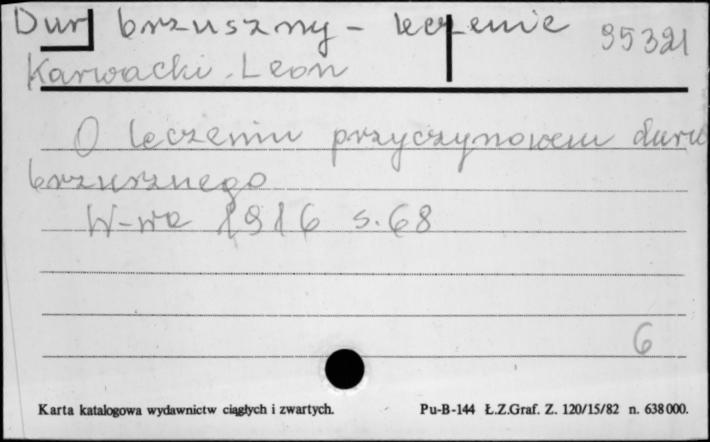 Dur brzuszny - leczenie 95321
Karwacki Leon
O leczeniu przyczynowem duru
brzusznego
W-wa 1916 s. 68
6
Karta katalogowa wydawnictw ciągłych i zwartych. Pu-B-144 Ł.Z.Graf. Z. 120/15/82 n. 638000.